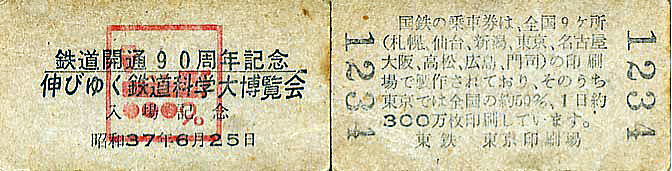 鉄道開通90周年記念
伸びゆく鉄道科学大博覧会
入場記念
昭和37年6月25日
1234
国鉄の乗車券は、全国9ヶ所
(札幌、仙台、新潟、東京、名古屋
大阪、高松、広島、門司)の印刷
場で製作されており、そのうち
東京では全国の約50%、1日約
300万枚印刷しています。
東鉄 東京印刷場
1234